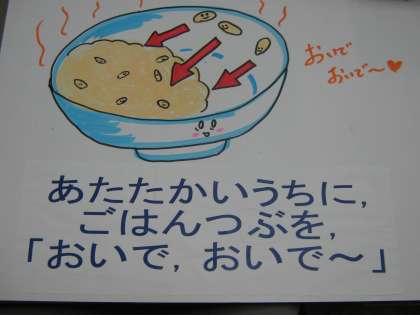 おいで
おいで〜♥
あたたかいうちに,
ごはんつぶを,
「おいで, おいで〜」